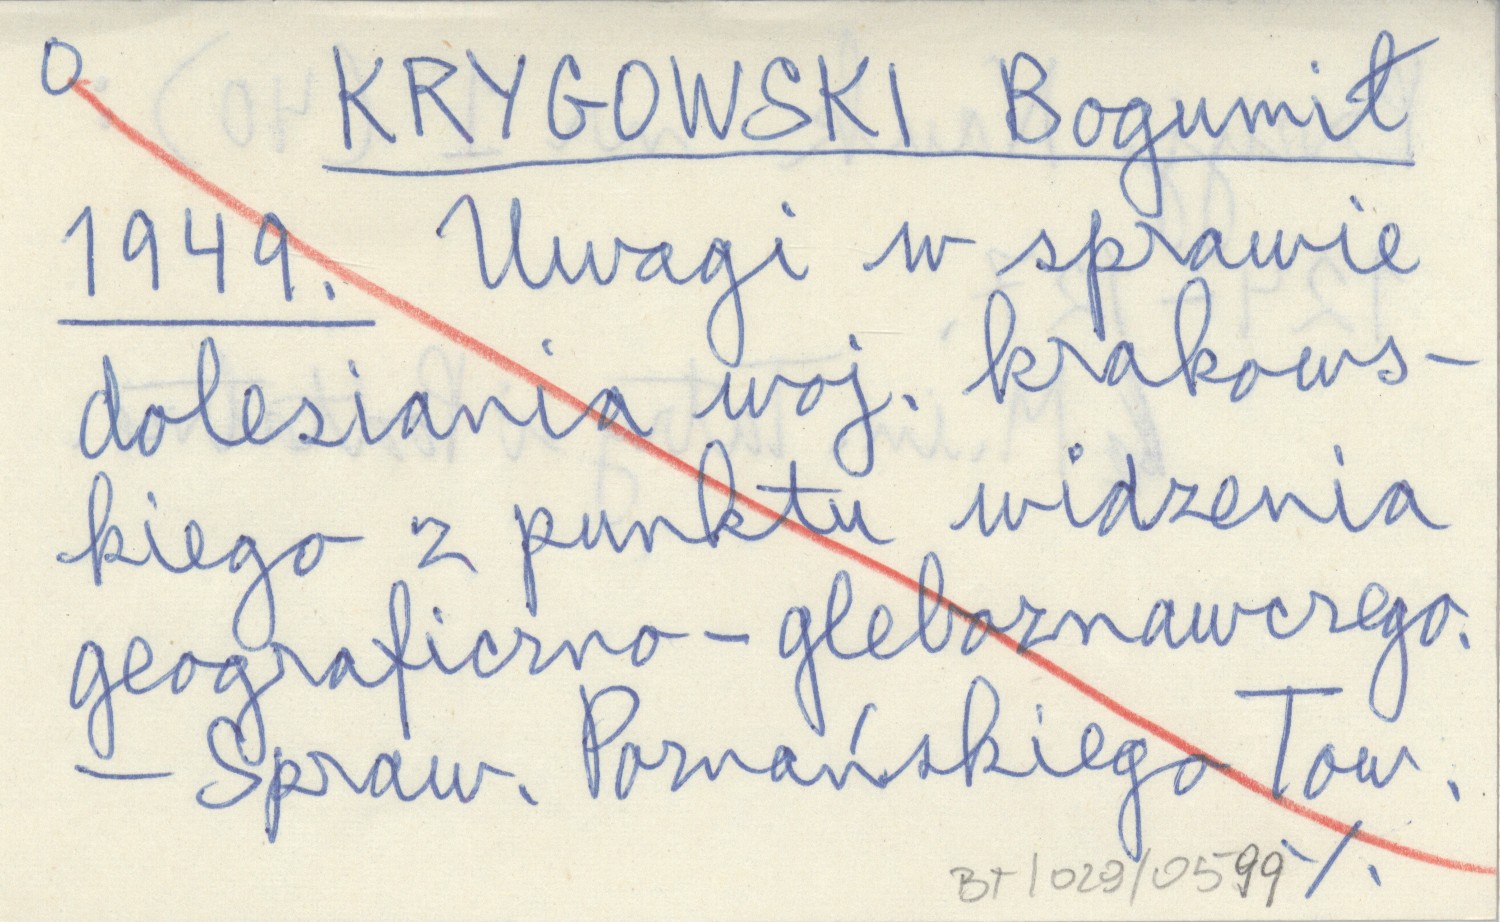 O KRYGOWSKI Bogumił
1949. Uwagi w sprawie
dolesiania woj. krakows-
kiego z punktu widzenia
geograficzno-gleboznawczego.
- Spraw. Poznańskiego Tow.
BT/029/0599 ·/.